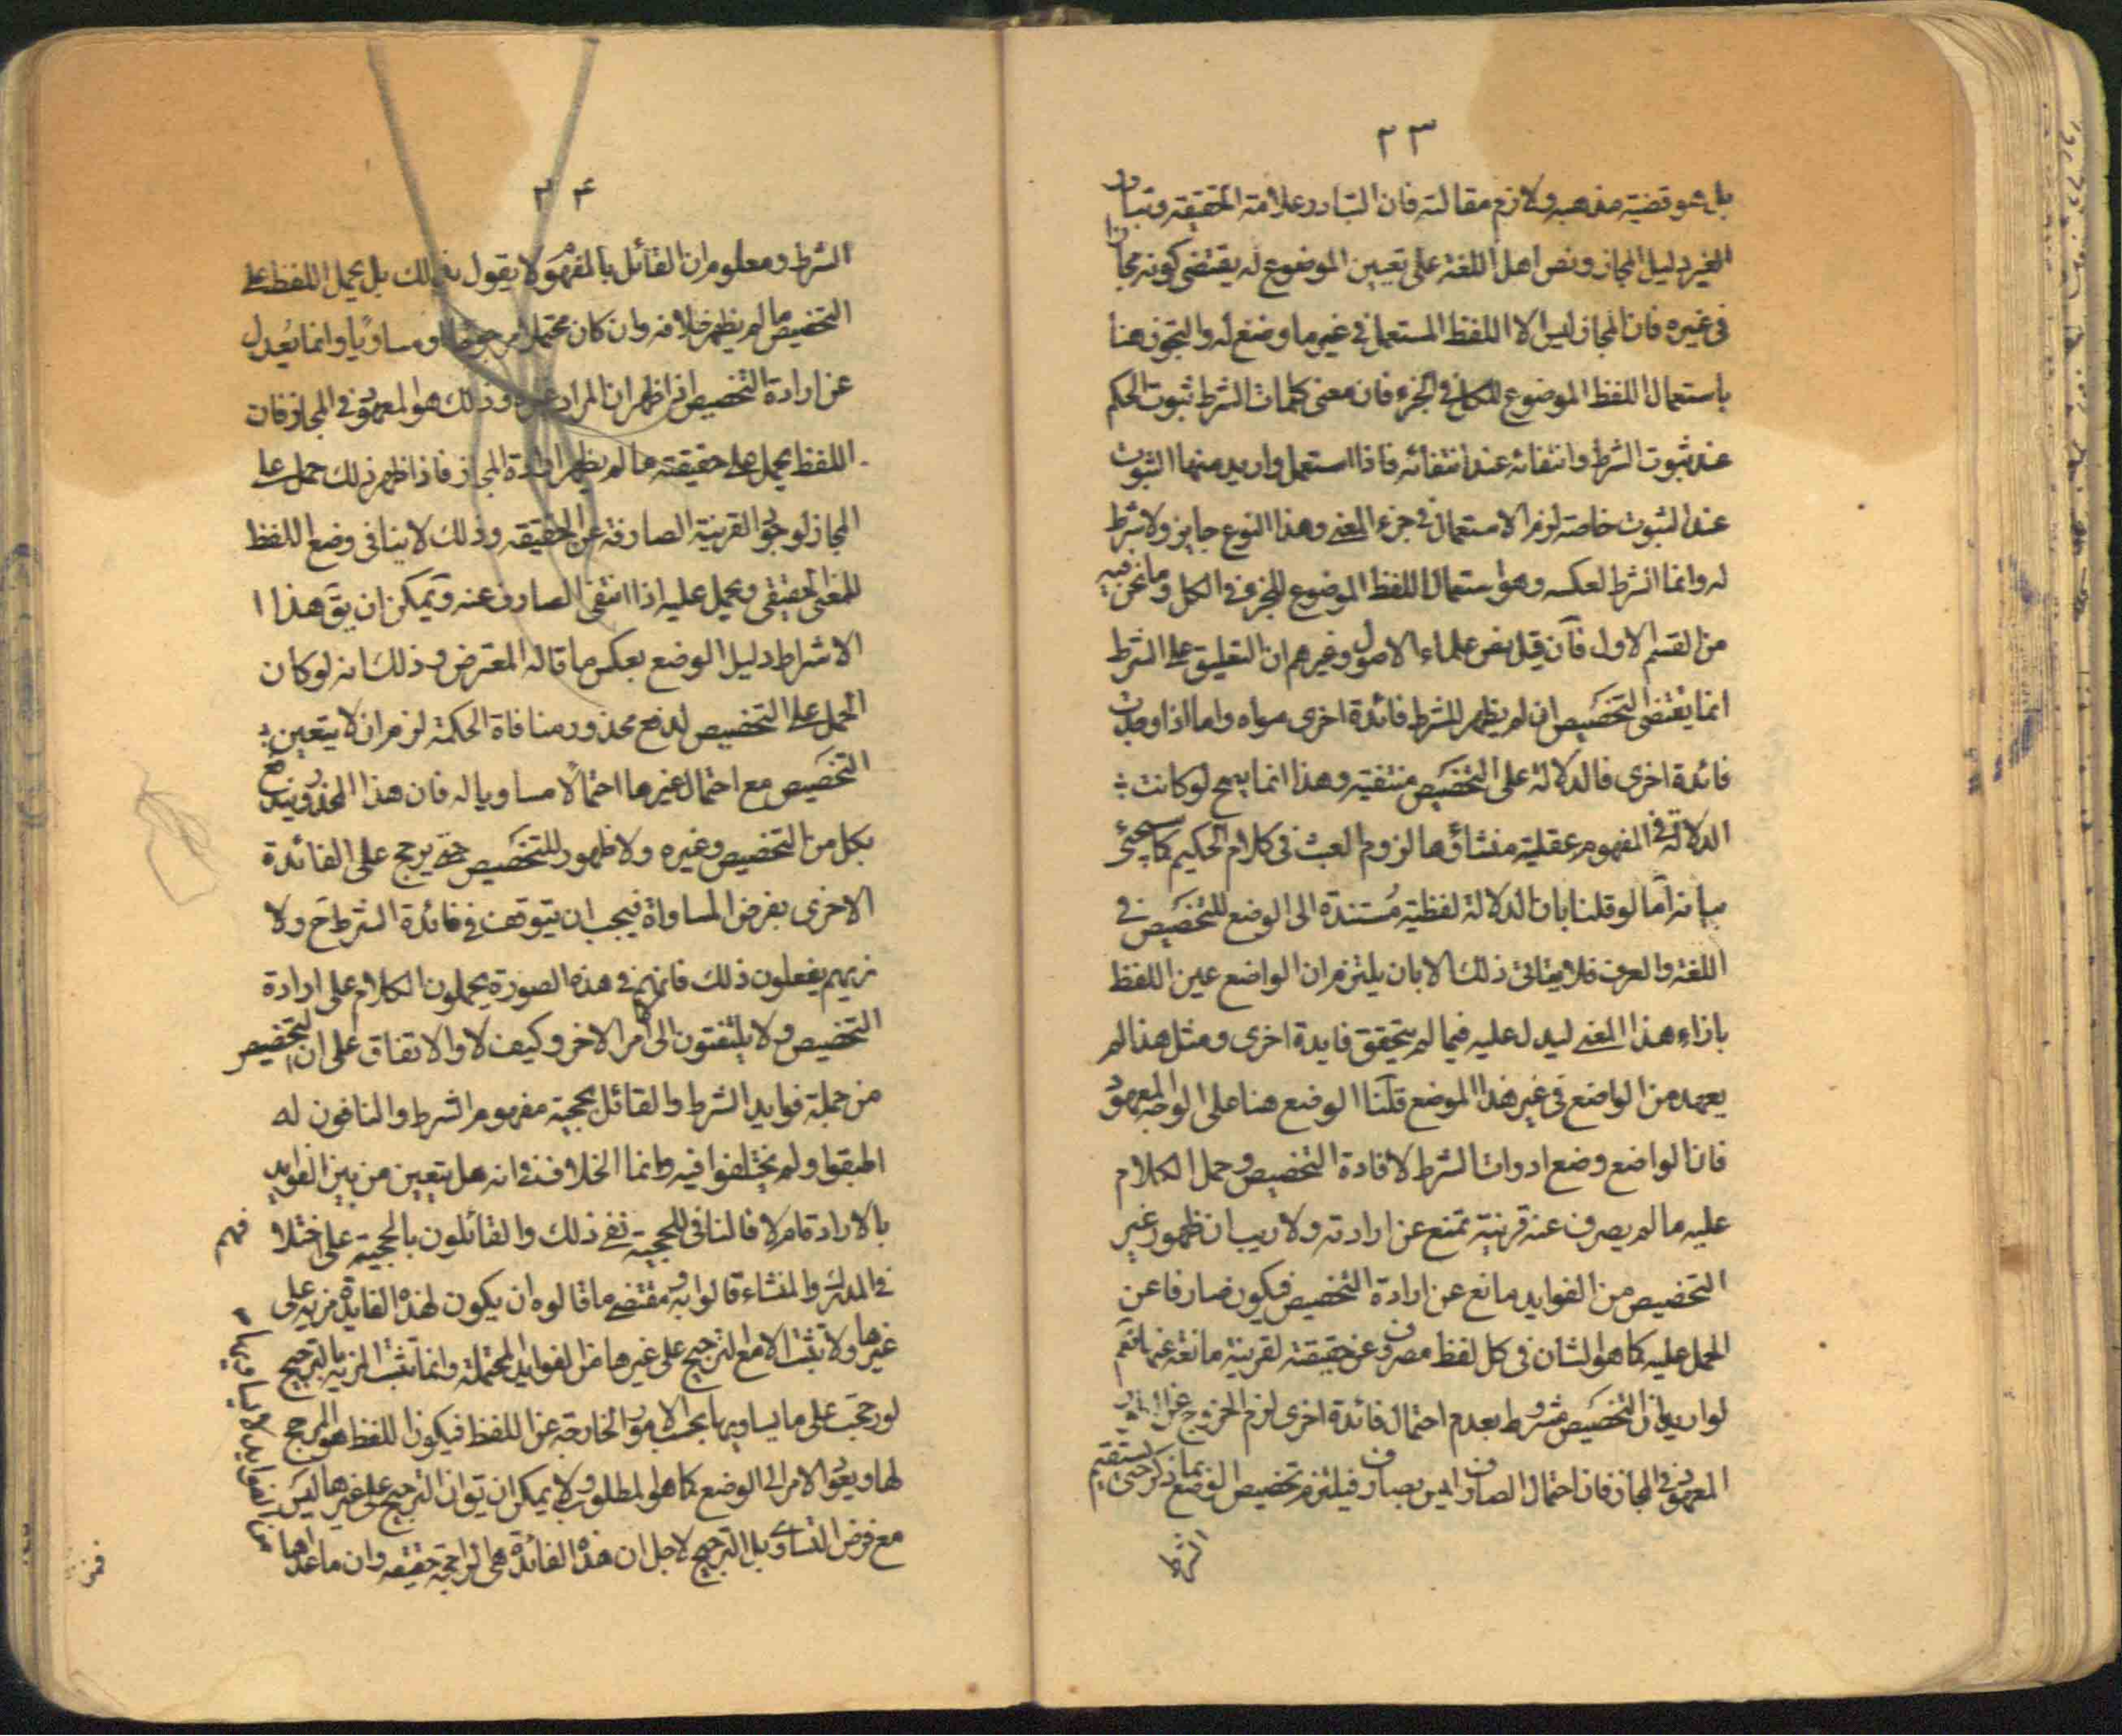 ٢٣
بل هو قضية مذهبه ولازم مقالته فان التبادر علامة الحقيقة وتبادر
الغير دليل المجاز ونص اهل اللغة على تعيين الموضوع له يقتضى كونه مجازا
فى غيره فان المجاز ليس الا اللفظ المستعمل فى غير ما وضع له والتجوز هنا
باستعمال اللفظ الموضوع للكل فى الجزء فان معنى كلمات الشرط ثبوت الحكم
عند ثبوت الشرط وانتفائه عند انتفائه فاذا استعمل واريد منها الثبوت
عند الثبوت خاصة لزم الاستعمال فى جزء المعنى وهذا النوع جايز ولا شرط
له وانما اشرط لعكسه وهو استعمال اللفظ الموضوع للجزء فى الكل وما نحن فيه
من القسم الاول فآن قيل نص علماء الاصول وغيرهم ان التعليق على الشرط
انما يقتضى التخصيص ان لم يظهر للشرط فائدة اخرى سواه واما اذا وجدت
فائدة اخرى فالدلالة على التخصيص منتفية وهذا انما يصح لو كانت
الدلالة فى المفهوم عقلية منشاؤها لزوم العبث فى كلام الحكيم كما سيجئ
بيانه اما لو قلنا بان الدلالة لفظية مُستندة الى الوضع للتخصيص فى
اللغة والعرف فلا يتاتى ذلك الا بان يلتزم ان الواضع عين اللفظ
بازاء هذا المعنى ليدل عليه فيما لم يتحقق فايدة اخرى ومثل هذا لم
يعهد من الواضع فى غير هذا الموضع قلنا الوضع هنا على الوجه المعهود
فان الواضع وضع ادوات الشرط لافادة التخصيص وحمل الكلام
عليه ما لم يصرف عنه قرينة تمنع عن ارادته ولا ريب ان ظهور غير
التخصيص من الفوايد مانع عن ارادة التخصيص فيكون صارفا عن
الحمل عليه كما هو الشان فى كل لفظ مصروف عن حقيقته لقرينة مانعة عنها نعم
لو اريد ان التخصيص مشروط بعدم احتمال فائدة اخرى لزم الخروج عن
المعهود فى المجاز فان احتمال الصارف ليس بصارف فيلتزم تخصيص الوضع بما ذكر حتى يستقيم
الشرط
٢۴
الشرط ومعلوم ان القائل بالمفهوم لا يقول بذلك بل يحمل اللفظ على
التخصيص ما لم يظهر خلافه وان كان محتملا مرجوحا او مساويًا وانما يُعدل
عن ارادة التخصيص اذا ظهر ان المراد غيره وذلك هو المعهود فى المجاز فان
اللفظ يحمل على حقيقته ما لم يظهر ارادة المجاز فاذا ظهر ذلك حمل على
المجاز لوجود القرينة الصارفة عن الحقيقة وذلك لا ينافى وضع اللفظ
للمعنى الحقيقى ويحمل عليه اذا انتفى الصارف عنه ويمكن ان يقَ هذا
الاشراط دليل الوضع بعكس ما قاله المعترض وذلك انه لو كان
الحمل على التخصيص لدفع محذور منافاة الحكمة لزم ان لا يتعين
التخصيص مع احتمال غيرها احتمالًا مساويا له فان هذا المحذور يندفع
بكل من التخصيص وغيره ولا ظهور للتخصيص حتى يرجح على الفائدة
الاخرى بفرض المساواة فيجب ان يتوقف فى فائدة الشرط حَ ولا
نريهم يفعلون ذلك فانهم فى هذه الصورة يحملون الكلام على ارادة
التخصيص ولا يلتفتون الى امر الاخر وكيف لا والاتفاق على ان التخصيص
من جملة فوايد الشرط والقائل بحجية مفهوم الشرط والنافون له
اطبقوا ولم يختلفوا فيه وانما الخلاف فى انه هل يتعين من بين الفوايد
بالارادة ام لا فالنافى للحجية نفى ذلك والقائلون بالحجية على اختلافهم
فى المدرك والمنشاء قالوا به ومقتضى ما قالوه ان يكون لهذه الفايدة مزية على
غيرها ولا تثبت الا مع الترجيح على غيرها من الفوايد المحتملة وانما تثبت المزية بالترجيح
لو رجحت على ما يساويها بحسب الامور الخارجة عن اللفظ فيكون اللفظ هو المرجح
لها ويعود الامر الى الوضع كما هو المطلوب ولا يمكن ان يقَ ان الترجيح على غيرها ليس
مع فرض التساوى بل الترجيح لاجل ان هذه الفائدة هى الراجحة حقيقة وان ما عداها
من الفوايد لا يساويها